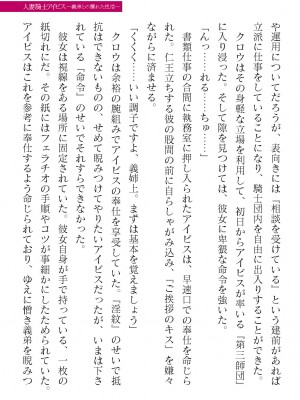 人妻騎士アイビス―義弟との穢れた性活―
や運用についてだろうが、表向きには『相談を受けている』という建前があれば
立派に仕事をしていることになり、騎士団内を自由に出入りすることができた。
クロウはその身軽な立場を利用して、初日からアイビスが率いる『第三師団』
に入り浸った。そして隙を見つけては、彼女に卑猥な命令を強いた。
「んっ……れる……ちゅ……」
書類仕事の合間に執務室に押し入られたアイビスは、早速口での奉仕を命じら
れた。仁王立ちする彼の股間の前に自らしゃがみ込み、『ご挨拶のキス』を嫌々
ながらに済ませる。
「くくく……いい調子ですよ、義姉上。まずは基本を覚えましょう」
クロウは余裕の腕組みでアイビスの奉仕を享受していた。『淫紋』のせいで抵
抗はできないものの、せめて睨みつけてやりたいアイビスだったが、いまは下さ
れている『命令』のせいでそれすらできなかった。
彼女は視線をある場所に固定されていた。彼女自身が手で持っている、一枚の
紙切れにだ。その紙にはフェラチオの手順やコツが事細かにしたためられていた。
アイビスはこれを参考に奉仕するよう命じられており、ゆえに憎き義弟を睨みつ